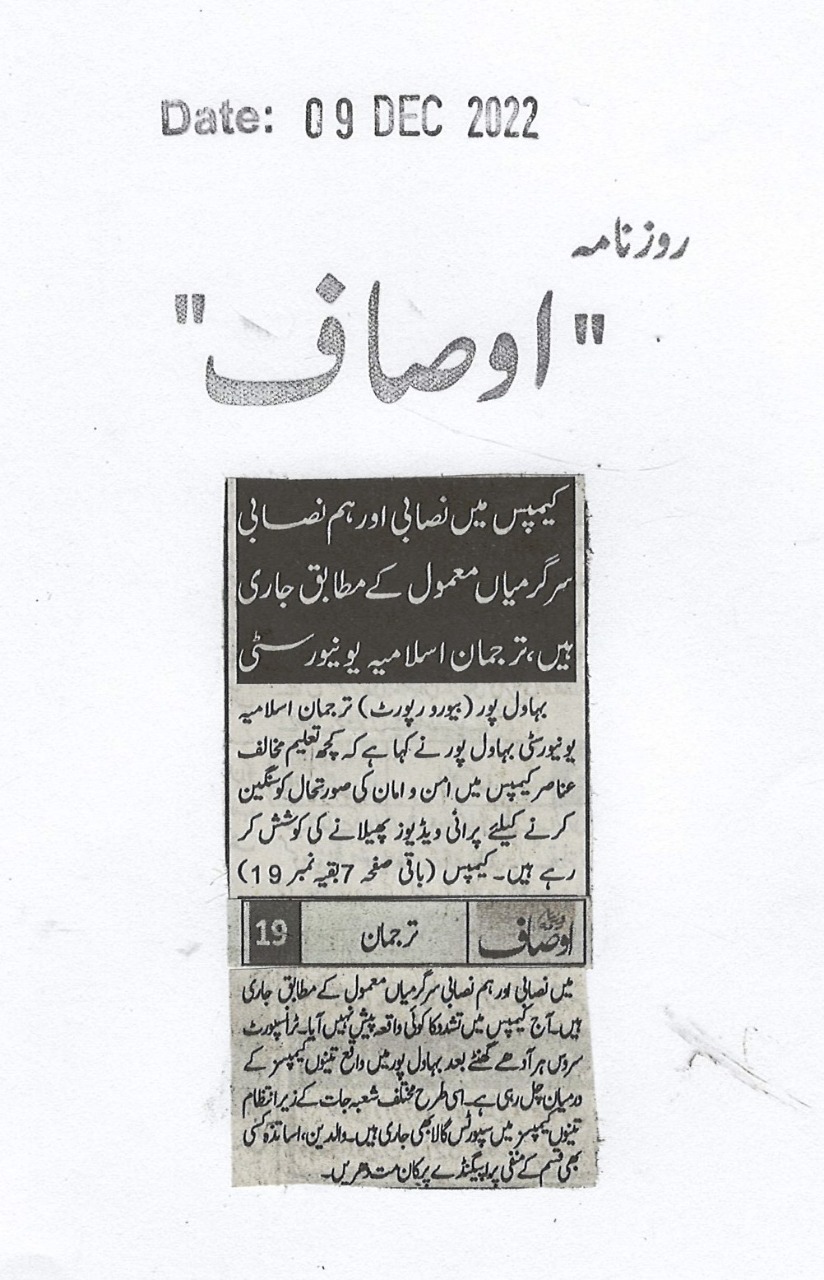 Date: 09 DEC 2022
روزنامہ
"اوصاف"
کیمپس میں نصابی اور ہم نصابی
سرگرمیاں معمول کے مطابق جاری
ہیں، ترجمان اسلامیہ یونیورسٹی
بہاول پور (بیورو رپورٹ) ترجمان اسلامیہ
یونیورسٹی بہاول پور نے کہا ہے کہ کچھ تعلیم مخالف
عناصر کیمپس میں امن و امان کی صورتحال کو سنگین
کرنے کیلئے پرانی ویڈیوز پھیلانے کی کوشش کر
رہے ہیں۔ کیمپس (باقی صفحہ 7 بقیہ نمبر 19)
اوصاف ترجمان 19
میں نصابی اور ہم نصابی سرگرمیاں معمول کے مطابق جاری
ہیں۔ آج کیمپس میں تشدد کا کوئی واقعہ پیش نہیں آیا۔ ٹرانسپورٹ
سروس ہر آدھے گھنٹے بعد بہاول پور میں واقع تینوں کیمپسز کے
درمیان چل رہی ہے۔ اسی طرح مختلف شعبہ جات کے زیر انتظام
تینوں کیمپسز میں سپورٹس گالا بھی جاری ہیں۔ والدین، اساتذہ کسی
بھی قسم کے منفی پراپیگنڈے پر کان مت دھریں۔